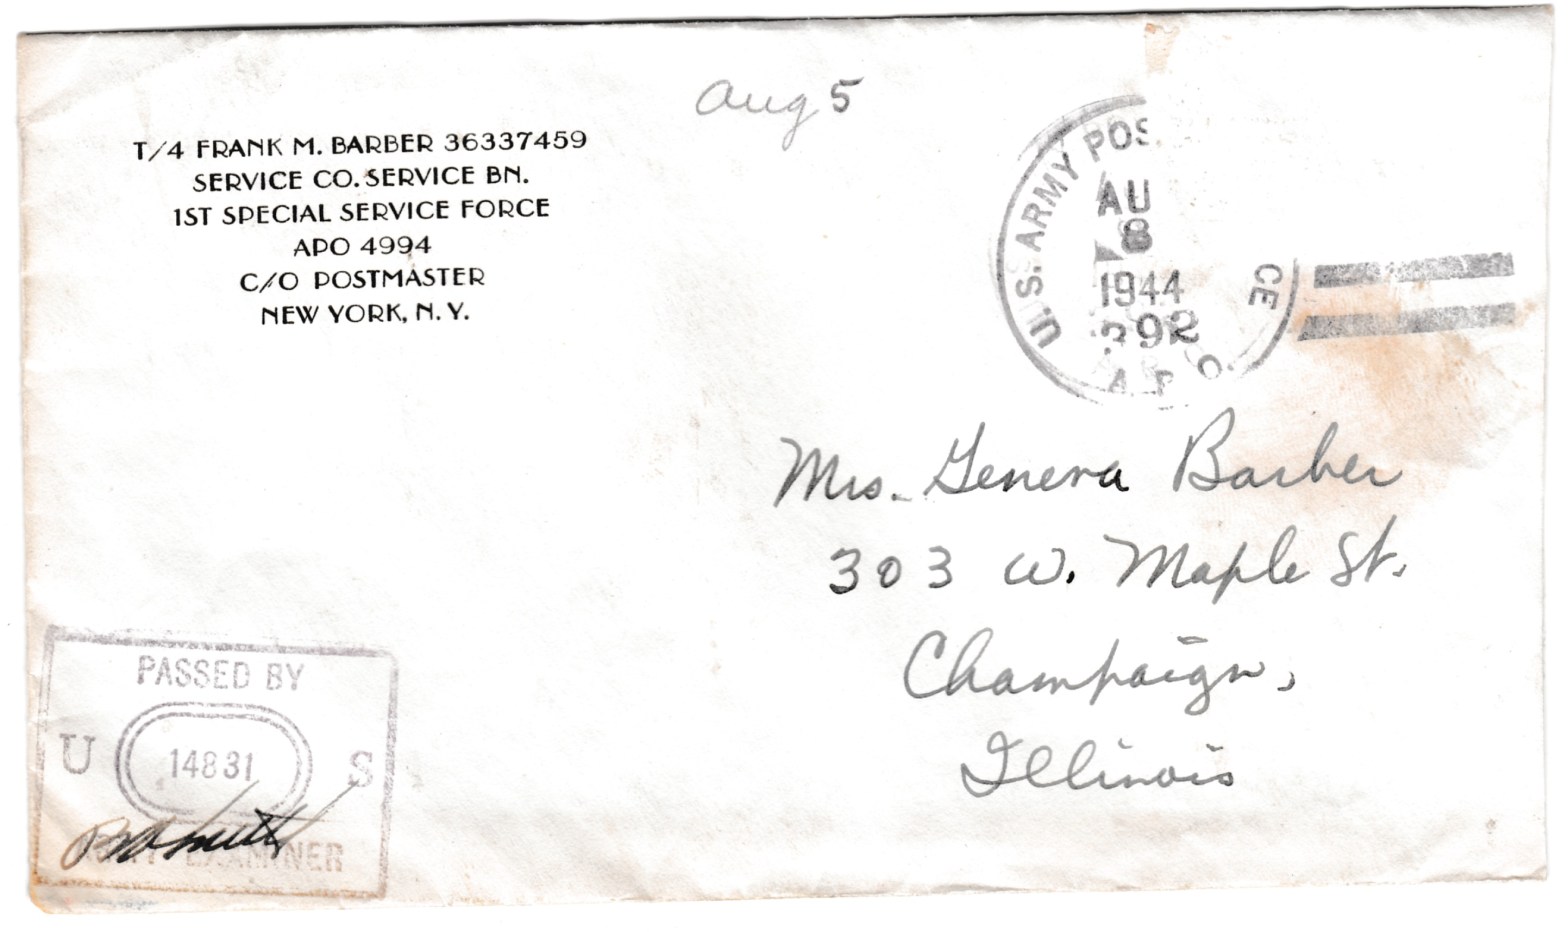 Aug 5
T/4 FRANK M. BARBER 36337459
SERVICE CO. SERVICE BN.
1ST SPECIAL SERVICE FORCE
APO 4994
C/O POSTMASTER
NEW YORK, N. Y.
U.S. ARMY POS CE
AU
8
1944
392
A.P.O.
Mrs. Geneva Barber
303 W. Maple St.
Champaign,
Illinois
PASSED BY
U 14831 S
EXAMINER